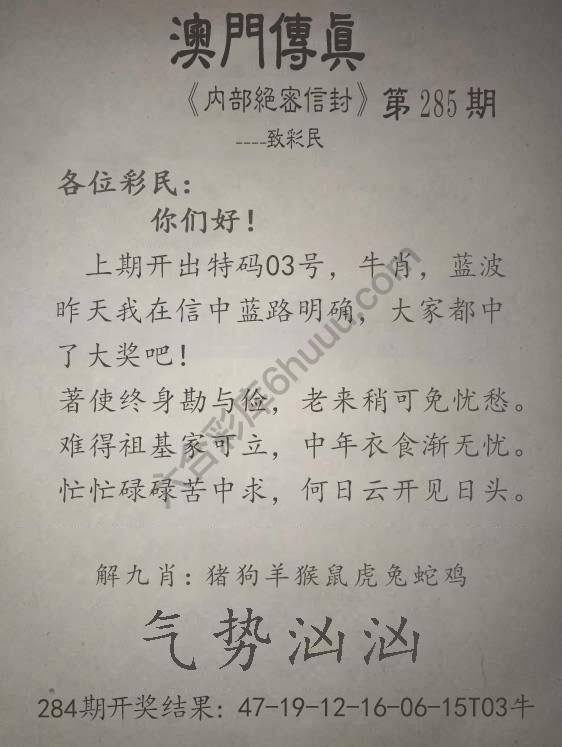 澳門傳眞
《内部絕密信封》第285期
----致彩民
各位彩民：
你们好！
上期开出特码03号，牛肖，蓝波
昨天我在信中蓝路明确，大家都中
了大奖吧！
著使终身勘与俭，老来稍可免忧愁。
难得祖基家可立，中年衣食渐无忧。
忙忙碌碌苦中求，何日云开见日头。
六合彩库6huuu.com
解九肖：猪狗羊猴鼠虎兔蛇鸡
气势汹汹
284期开奖结果：47-19-12-16-06-15T03牛